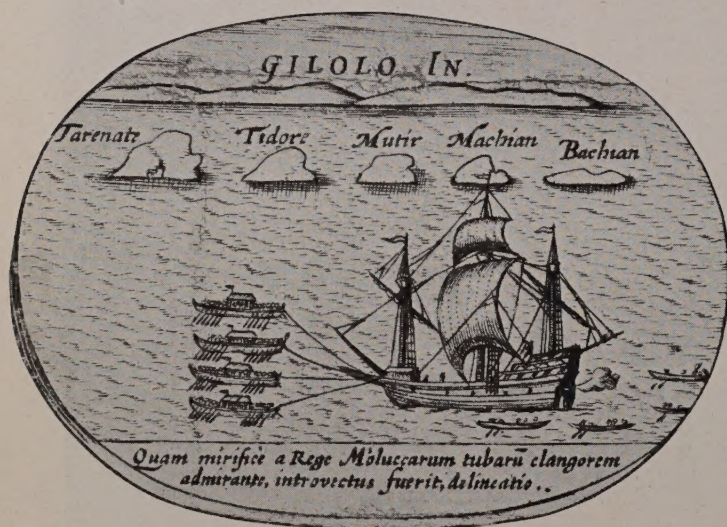 GILOLO IN.
Tarenate Tidore Mutir Machian Bachian
Quam mirificè a Rege Moluccarum tubarū clangorem
admirante, introvectus fuerit, delineatio..